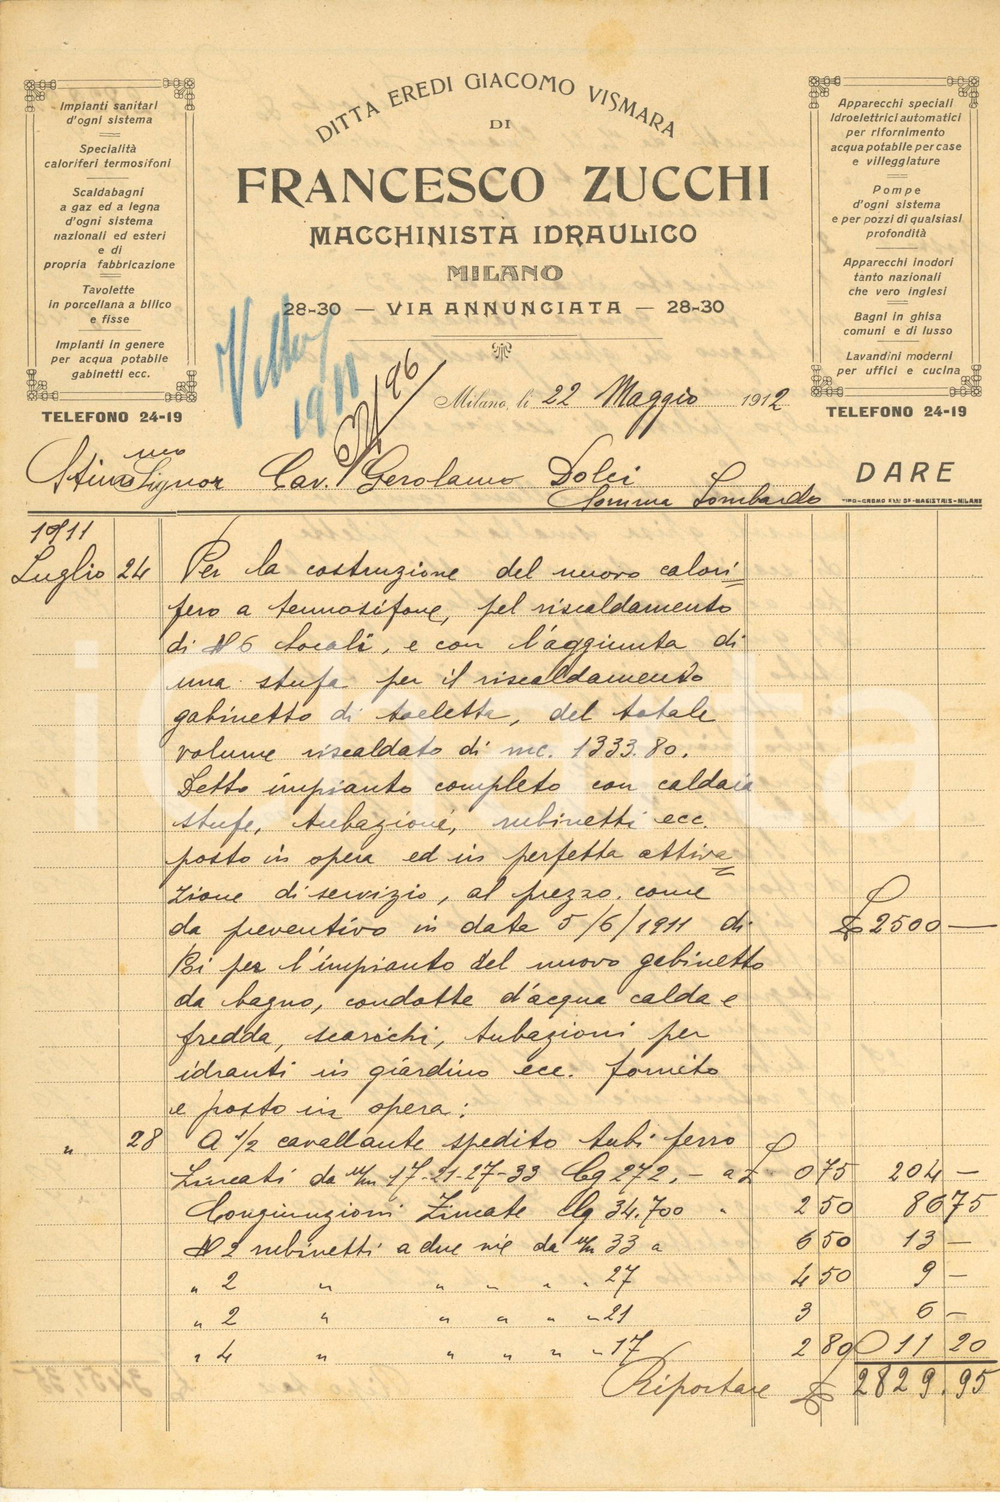 DITTA EREDI GIACOMO VISMARA
DI
FRANCESCO ZUCCHI
MACCHINISTA IDRAULICO
MILANO
28-30 — VIA ANNUNCIATA — 28-30
Impianti sanitari
d'ogni sistema
Specialità
caloriferi termosifoni
Scaldabagni
a gaz ed a legna
d'ogni sistema
nazionali ed esteri
e di
propria fabbricazione
Tavolette
in porcellana a bilico
e fisse
Impianti in genere
per acqua potabile
gabinetti ecc.
TELEFONO 24-19
Apparecchi speciali
Idroelettrici automatici
per rifornimento
acqua potabile per case
e villeggiature
Pompe
d'ogni sistema
e per pozzi di qualsiasi
profondità
Apparecchi inodori
tanto nazionali
che vero inglesi
Bagni in ghisa
comuni e di lusso
Lavandini moderni
per uffici e cucina
TELEFONO 24-19
1911
96
Milano, li 22 Maggio 1912
Stimmo Signor Cav. Gerolamo Dolci
Somma Lombardo
DARE
1911
Luglio 24 Per la costruzione del nuovo calori=
fero a termosifone, pel riscaldamento
di N 6 locali, e con l'aggiunta di
una stufa per il riscaldamento
gabinetto di toeletta, del totale
volume riscaldato di mc. 1333.80.
Detto impianto completo con caldaia
stufe, tubazione, rubinetti ecc.
posto in opera ed in perfetta attiva=
zione di servizio, al prezzo come
da preventivo in data 5/6/1911 di £ 2500 —
Più per l'impianto del nuovo gabinetto
da bagno, condotte d'acqua calda e
fredda, scarichi, tubazioni per
idranti in giardino ecc. fornito
e posto in opera:
" 28 A 1/2 cavallante spedito tubi ferro
Zincati da m/m 17-21-27-33 Cg 272,- a £ 0 75 204 —
Congiunzioni Zincate Cg 34.700 " 2 50 86 75
N 2 rubinetti a due vie da m/m 33 a 6 50 13 —
" 2 " " " " " 27 4 50 9 —
" 2 " " " " " 21 3 6 —
" 4 " " " " " 17 2 80 11 20
Riportare £ 2829.95
iCharta